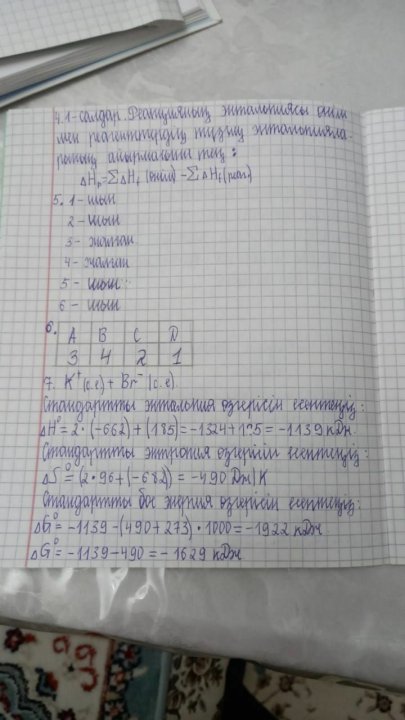 4. 1-салдар. Реакцияның энтальпиясы өнім
мен реагенттердің түзілу энтальпияла-
рының айырмасына тең:
ΔHр=ΣΔHf (өнім) - ΣΔHf (реаг.)
5. 1 - шын
2 - шын
3 - жалған
4 - жалған
5 - шын
6 - шын
6.
A B C D
3 4 2 1
7. K⁺(с.е) + Br⁻(с.е)
Стандартты энтальпия өзгерісін есептеңіз:
ΔH°=2·(-662)+(185)=-1324+185=-1139 кДж
Стандартты энтропия өзгерісін есептеңіз:
ΔS°=(2·96+(-682))=-490 Дж/К
Стандартты бос энергия өзгерісін есептеңіз:
ΔG°=-1139-(490+273)·1000=-1922 кДж
ΔG°=-1139-490=-1629 кДж